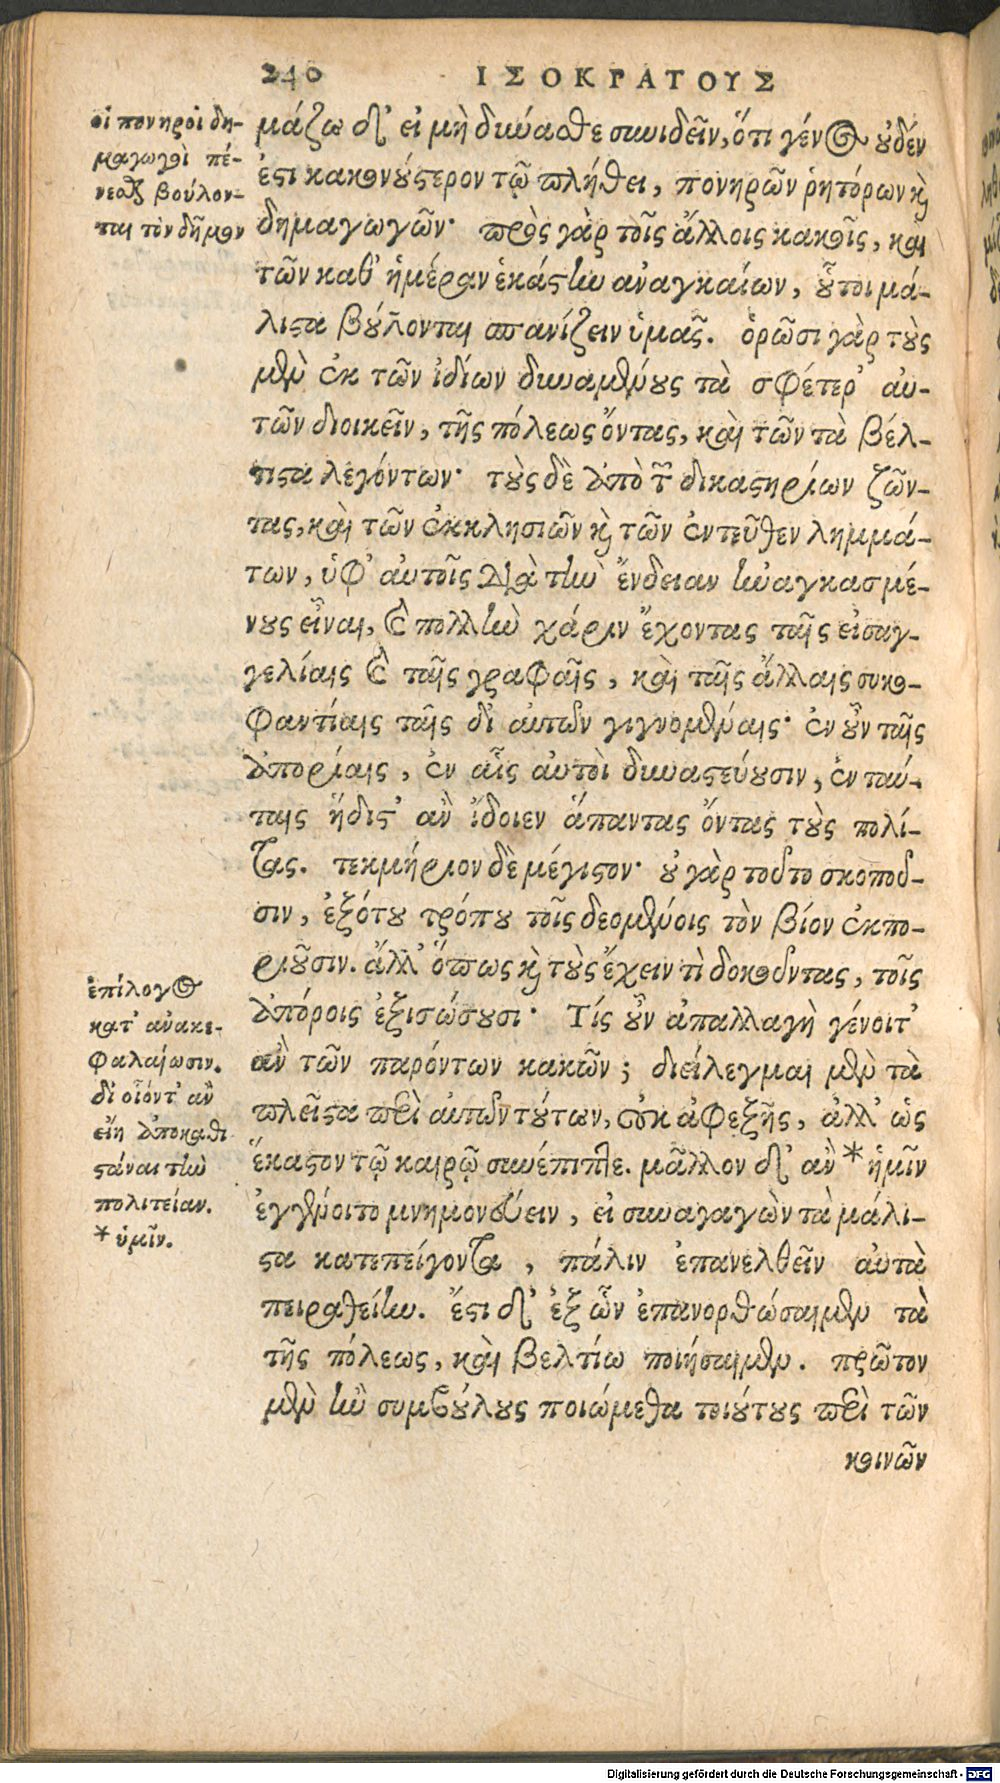 240
ΙΣΟΚΡΑΤΟΥΣ
οἱ πονηροὶ δη-
μαγωγοὶ πέ-
νεσθαι βούλον-
ται τὸν δῆμον
μάζω δ' εἰ μὴ δύνασθε συνιδεῖν, ὅτι γένος οὐδέν
ἐστι κακονούστερον τῷ πλήθει, πονηρῶν ῥητόρων καὶ
δημαγωγῶν· πρὸς γὰρ τοῖς ἄλλοις κακοῖς, καὶ
τῶν καθ' ἡμέραν ἑκάστην ἀναγκαίων, οὗτοι μά-
λιστα βούλονται σπανίζειν ὑμᾶς. ὁρῶσι γὰρ τοὺς
μὲν ἐκ τῶν ἰδίων δυναμένους τὰ σφέτερ' αὐ-
τῶν διοικεῖν, τῆς πόλεως ὄντας, καὶ τῶν τὰ βέλ-
τιστα λεγόντων· τοὺς δὲ ἀπὸ τῶν δικαστηρίων ζῶν-
τας, καὶ τῶν ἐκκλησιῶν καὶ τῶν ἐντεῦθεν λημμά-
των, ὑφ' αὑτοῖς διὰ τὴν ἔνδειαν ἠναγκασμέ-
νους εἶναι, καὶ πολλὴν χάριν ἔχοντας ταῖς εἰσαγ-
γελίαις καὶ ταῖς γραφαῖς, καὶ ταῖς ἄλλαις συκο-
φαντίαις ταῖς δι' αὐτῶν γιγνομέναις· ἐν οὖν ταῖς
ἀπορίαις, ἐν αἷς αὐτοὶ δυναστεύουσιν, ἐν ταύ-
ταις ἥδιστ' ἂν ἴδοιεν ἅπαντας ὄντας τοὺς πολί-
τας. τεκμήριον δὲ μέγιστον· οὐ γὰρ τοῦτο σκοποῦ-
σιν, ἐξότου τρόπου τοῖς δεομένοις τὸν βίον ἐκπο-
ριοῦσιν. ἀλλ' ὅπως καὶ τοὺς ἔχειν τὶ δοκοῦντας, τοῖς
ἀπόροις ἐξισώσουσι· Τίς οὖν ἀπαλλαγὴ γένοιτ'
ἂν τῶν παρόντων κακῶν; διείλεγμαι μὲν τὰ
πλεῖστα περὶ αὐτῶν τούτων, οὐκ ἀφεξῆς, ἀλλ' ὡς
ἕκαστον τῷ καιρῷ συνέπιπτε. μᾶλλον δ' ἂν * ἡμῖν
ἐγγένοιτο μνημονεύειν, εἰ συναγαγὼν τὰ μάλι-
στα κατεπείγοντα, πάλιν ἐπανελθεῖν αὐτὰ
πειραθείην. ἔστι δ' ἐξ ὧν ἐπανορθώσαιμεν τὰ
τῆς πόλεως, καὶ βελτίω ποιήσαιμεν. πρῶτον
μὲν ἢν συμβούλους ποιώμεθα τοιούτους περὶ τῶν
κοινῶν
ἐπίλογος
κατ' ἀνακε-
φαλαίωσιν.
δι' οἷόντ' ἂν
εἴη ἀποκαθι
στάναι τὴν
πολιτείαν.
* ὑμῖν.
Digitalisierung gefördert durch die Deutsche Forschungsgemeinschaft - DFG